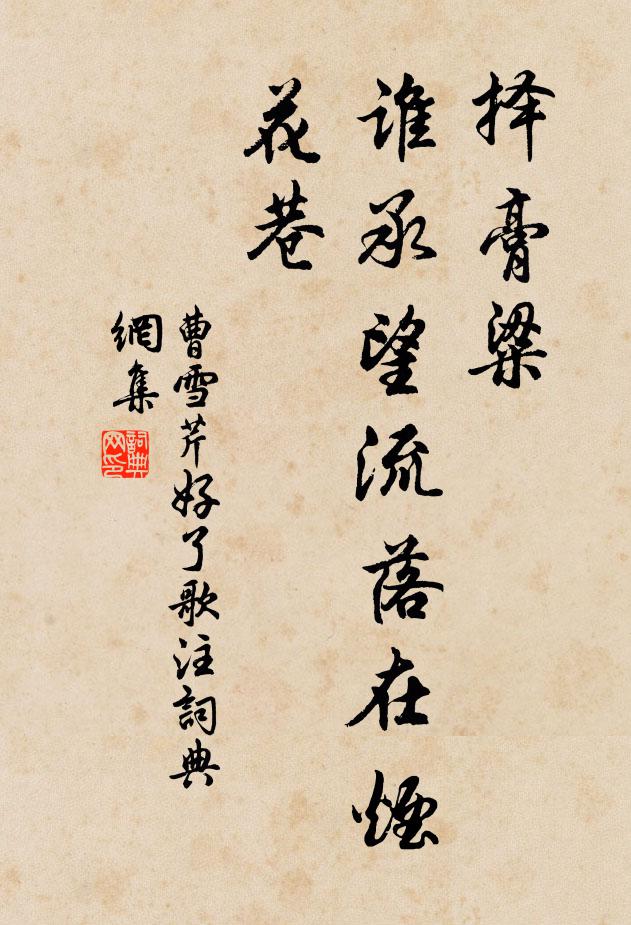 择膏粱
谁承望流落在烟
花巷
曹雪芹好了歌注詞典
網集
詞典
网印